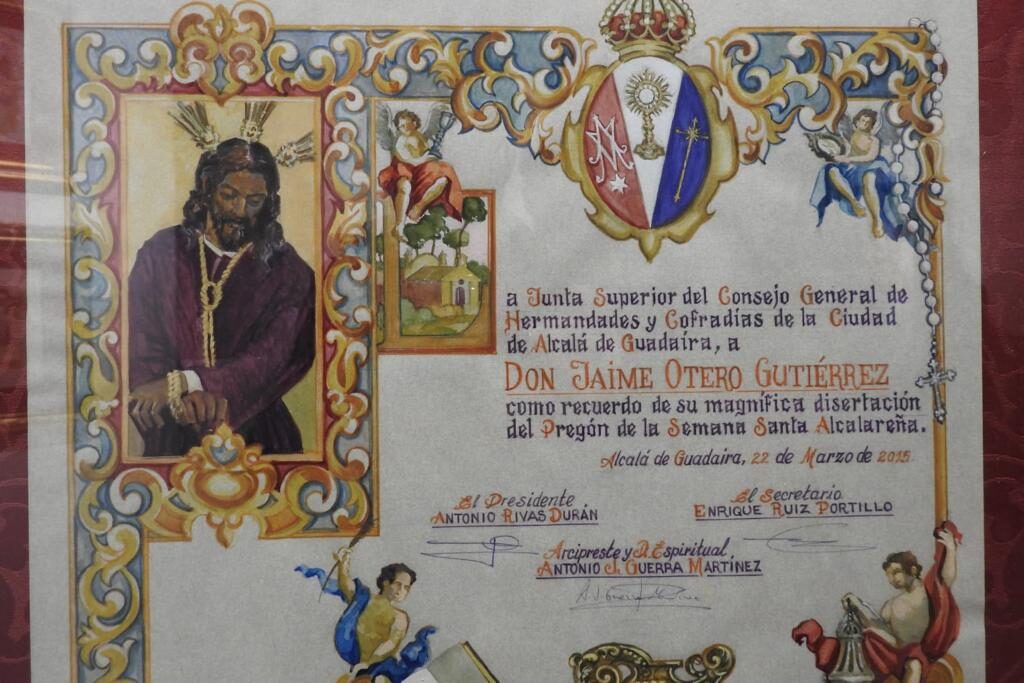 La Junta Superior del Consejo General de
Hermandades y Cofradías de la Ciudad
de Alcalá de Guadaíra, a
DON JAIME OTERO GUTIÉRREZ
como recuerdo de su magnífica disertación
del Pregón de la Semana Santa Alcalareña.
Alcalá de Guadaira, 22 de Marzo de 2015
El Presidente
ANTONIO RIVAS DURÁN
El Secretario
ENRIQUE RUIZ PORTILLO
Arcipreste y D. Espiritual
ANTONIO J. GUERRA MARTÍNEZ